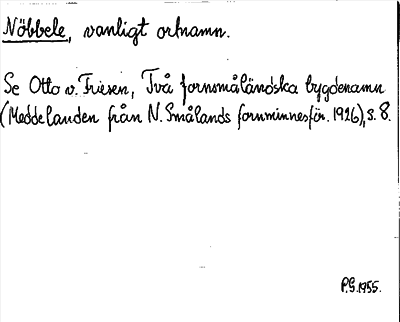 Nöbbele, vanligt ortnamn.
Se Otto v. Friesen, Två fornsmåländska bygdenamn
(Meddelanden från N. Smålands fornminnesför. 1926), s. 8.
P.G. 1955.